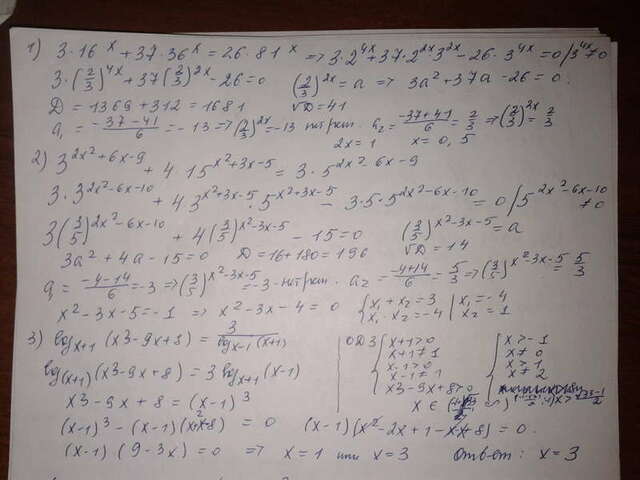 1) 3·16^x + 37·36^x = 26·81^x => 3·2^4x + 37·2^2x 3^2x - 26·3^4x = 0 /3^4x ≠0
3·(2/3)^4x + 37(2/3)^2x - 26 = 0   (2/3)^2x = a => 3a² + 37a - 26 = 0.
D = 1369 + 312 = 1681   √D = 41
a₁ = (-37-41)/6 = -13 => (2/3)^2x = -13   a₂ = (-37+41)/6 = 2/3 => (2/3)^2x = 2/3
2x = 1   x = 0,5
2) 3^(2x²+6x-9) + 4·15^(x²+3x-5) = 3·5^(2x²-6x-9)
3·3^(2x²-6x-10) + 4·3^(x²+3x-5)·5^(x²+3x-5) - 3·5·5^(2x²-6x-10) = 0 /5^(2x²-6x-10) ≠0
3(3/5)^(2x²-6x-10) + 4(3/5)^(x²-3x-5) - 15 = 0   (3/5)^(x²-3x-5) = a
3a² + 4a - 15 = 0   D = 16 + 180 = 196   √D = 14
a₁ = (-4-14)/6 = -3 => (3/5)^(x²-3x-5) = -3   a₂ = (-4+14)/6 = 5/3 => (3/5)^(x²-3x-5) = 5/3
x² - 3x - 5 = -1 => x² - 3x - 4 = 0 { x₁ + x₂ = 3   x₁·x₂ = -4 | x₁ = -4   x₂ = 1
3) log_(x+1) (x³-9x+8) = 3/(log_(x-1) (x+1))   ОДЗ { x+1>0   { x > -1
x+1≠1   x ≠ 0
x-1>0   x > 1
log_(x+1) (x³-9x+8) = 3 log_(x+1) (x-1)   x-1≠1   x ≠ 2
x³-9x+8>0
x³ - 9x + 8 = (x-1)³   x ∈
(x-1)³ - (x-1)(x²+x-8) = 0   (x-1)(x²-2x+1-x²-x+8) = 0.
(x-1)(9-3x) = 0 => x = 1 или x = 3   Ответ: x = 3